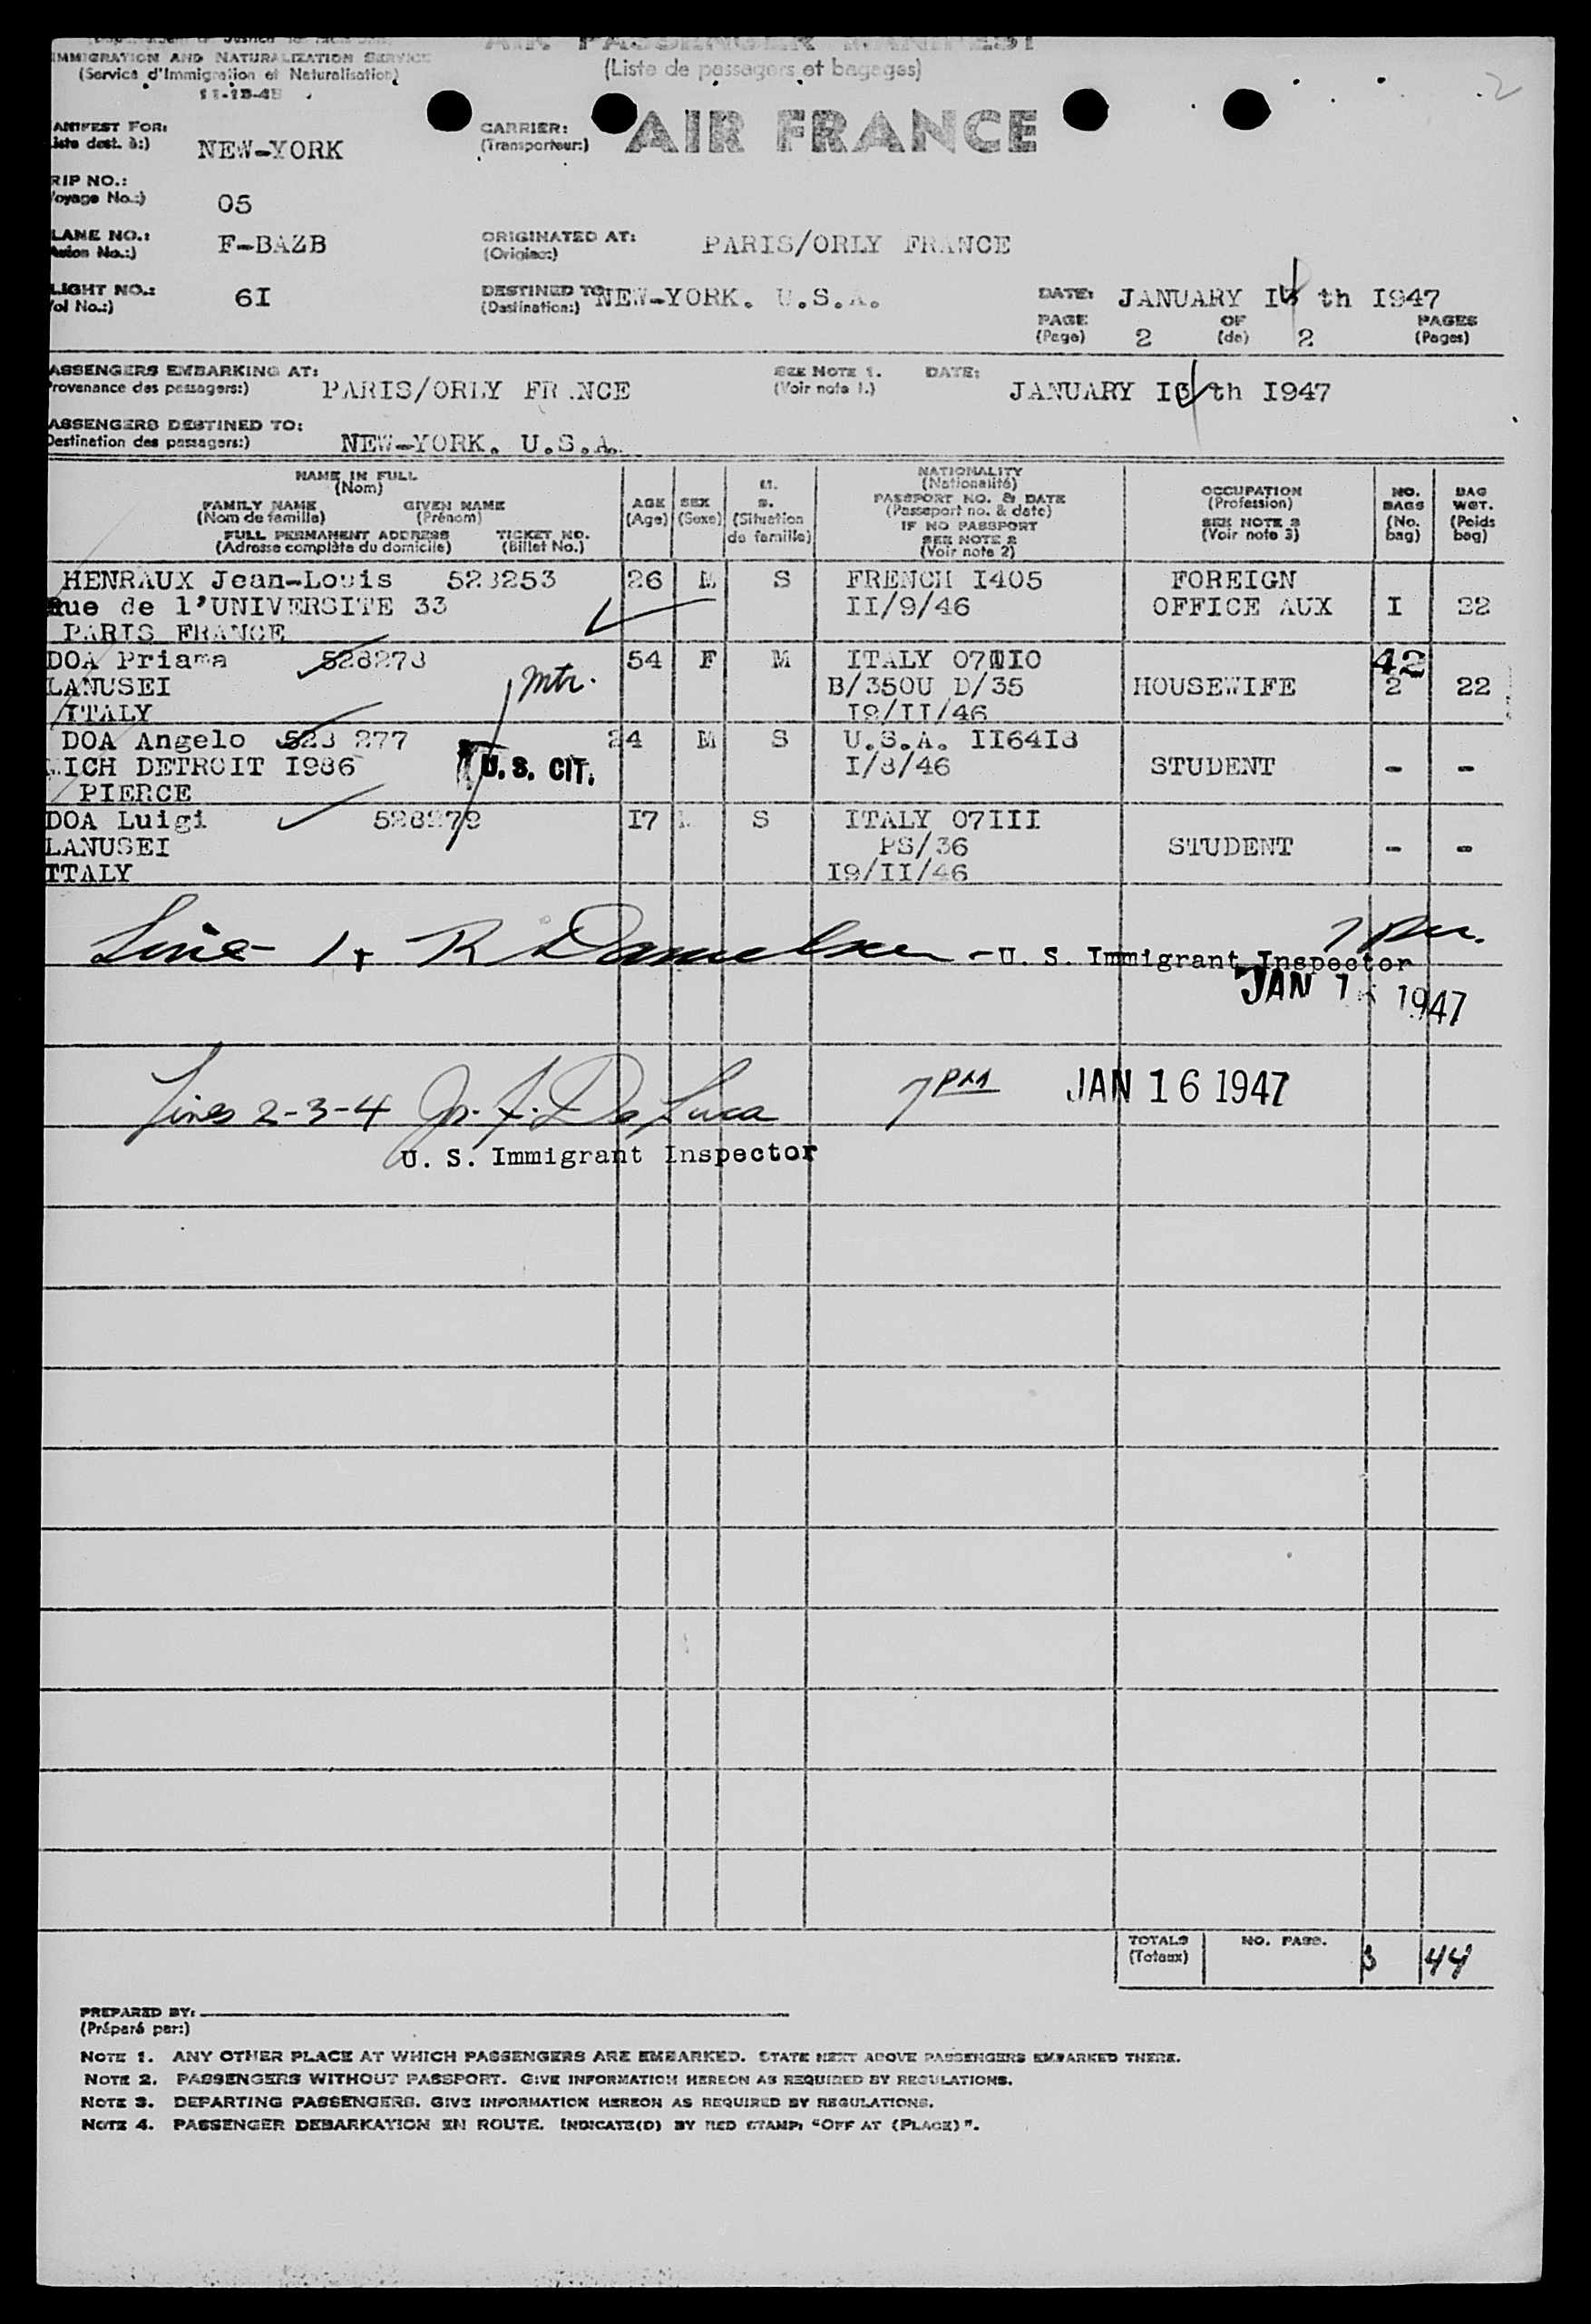 IMMIGRATION AND NATURALIZATION SERVICE
(Service d'Immigration et Naturalisation)
AIR PASSENGER MANIFEST
(Liste de passagers et bagages)
2
ANIFEST FOR:
iste dest. à:)
NEW-YORK
CARRIER:
(Transporteur:)
AIR FRANCE
RIP NO.:
oyage No.:)
05
LANE NO.:
Avion No.:)
F-BAZB
ORIGINATED AT:
(Origine:)
PARIS/ORLY FRANCE
LIGHT NO.:
ol No.:)
6I
DESTINED TO
(Destination:)
NEW-YORK. U.S.A.
DATE:
JANUARY I th I947
PAGE
(Page)
2
OF
(de)
2
PAGES
(Pages)
ASSENGERS EMBARKING AT:
rovenance des passagers:)
PARIS/ORLY FR NCE
SEE NOTE 1.
(Voir note 1.)
DATE:
JANUARY I th I947
ASSENGERS DESTINED TO:
Destination des passagers:)
NEW-YORK. U.S.A.
NAME IN FULL
(Nom)
FAMILY NAME
(Nom de famille)
GIVEN NAME
(Prénom)
FULL PERMANENT ADDRESS
(Adresse complète du domicile)
TICKET NO.
(Billet No.)
AGE
(Age)
SEX
(Sexe)
M.
S.
(Situation
de famille)
NATIONALITY
(Nationalité)
PASSPORT NO. & DATE
(Passeport no. & date)
IF NO PASSPORT
SEE NOTE 2
(Voir note 2)
OCCUPATION
(Profession)
SEE NOTE 3
(Voir note 3)
NO.
BAGS
(No.
bag)
BAG
WGT.
(Poids
bag)
HENRAUX Jean-Louis 528253 26 M S FRENCH I405 FOREIGN
Rue de l'UNIVERSITE 33 II/9/46 OFFICE AUX I 22
PARIS FRANCE
DOA Priama 528278 54 F M ITALY 07IIO 42
LANUSEI mtr. B/350U D/35 HOUSEWIFE 2 22
ITALY I9/II/46
DOA Angelo 528 277 24 M S U.S.A. II64I8
MICH DETROIT I986 U. S. CIT. I/8/46 STUDENT - -
PIERCE
DOA Luigi 528279 I7 M S ITALY 07III
LANUSEI PS/36 STUDENT - -
ITALY I9/II/46
Line 1 R Danielsen - U. S. Immigrant Inspector 7 pm.
JAN 1 1947
Lines 2-3-4 Jo. F. De Luca 7 PM JAN 16 1947
U. S. Immigrant Inspector
TOTALS
(Totaux)
NO. PASS.
3
44
PREPARED BY:
(Préparé par:)
NOTE 1. ANY OTHER PLACE AT WHICH PASSENGERS ARE EMBARKED. STATE NEXT ABOVE PASSENGERS EMBARKED THERE.
NOTE 2. PASSENGERS WITHOUT PASSPORT. GIVE INFORMATION HEREON AS REQUIRED BY REGULATIONS.
NOTE 3. DEPARTING PASSENGERS. GIVE INFORMATION HEREON AS REQUIRED BY REGULATIONS.
NOTE 4. PASSENGER DEBARKATION EN ROUTE. INDICATE(D) BY RED STAMP: "OFF AT (PLACE)".